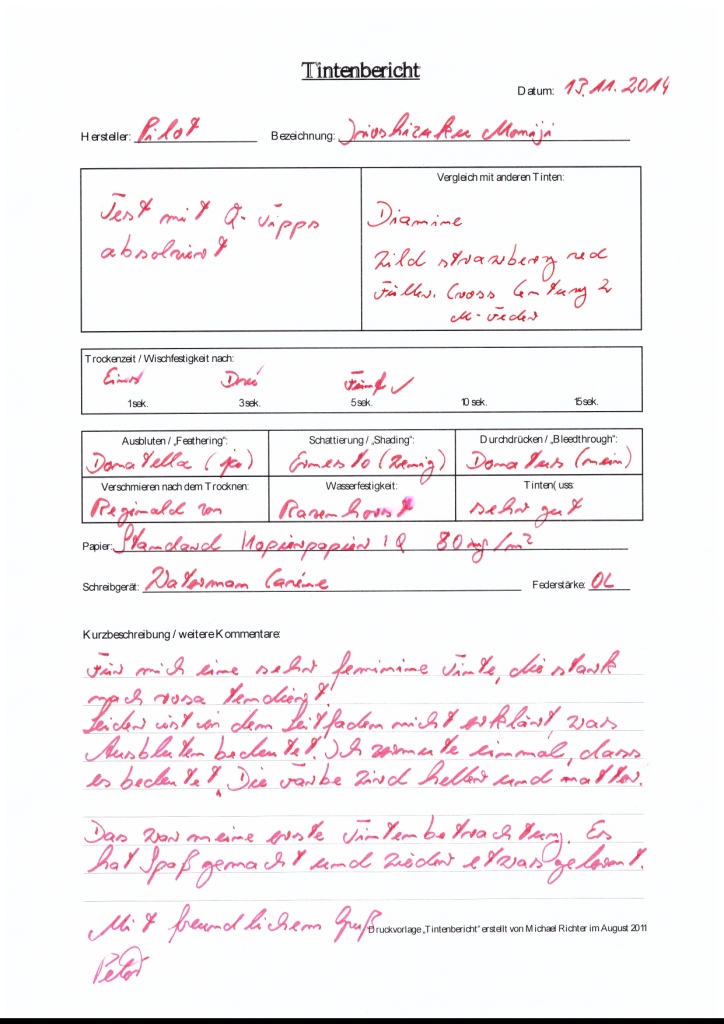 Tintenbericht
Datum: 13.11.2014
Hersteller: Pilot Bezeichnung: Iroshizuku Momiji
Test mit Q-Tipps
absolviert
Vergleich mit anderen Tinten:
Diamine
Wild strawberry red
Füller: Cross Century 2
M-Feder
Trockenzeit / Wischfestigkeit nach:
Eins Drei Fünf ✓
1sek. 3sek. 5sek. 10 sek. 15sek.
Ausbluten / „Feathering“: Schattierung / „Shading“: Durchdrücken / „Bleedthrough“:
Donatella (ja) Ernesto (wenig) Donatus (nein)
Verschmieren nach dem Trocknen: Wasserfestigkeit: Tinten( uss:
Reginald von Rasenhorst sehr gut
Papier: Standard Kopierpapier IQ 80mg/m²
Schreibgerät: Waterman Carène Federstärke: OL
Kurzbeschreibung / weitere Kommentare:
Für mich eine sehr feminine Tinte, die stark
nach rosa tendiert.
Leider ist in dem Leitfaden nicht erklärt, was
Ausbluten bedeutet. Ich vermute einmal, dass
es bedeutet, Die Farbe wird heller und matter.
Das war meine erste Tintenbetrachtung. Es
hat Spaß gemacht und wieder etwas gelernt.
Mit freundlichem Gruß
Druckvorlage „Tintenbericht“ erstellt von Michael Richter im August 2011
Peter